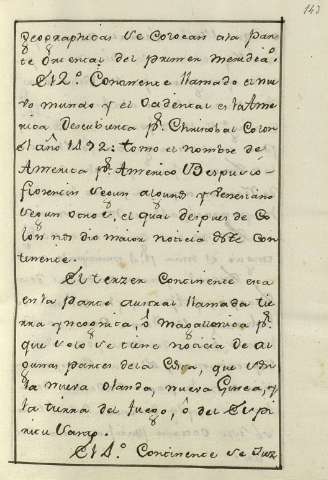 143
Geographicas se colocan ala par
te Oriental del primer meridiaº.
El 2º Continente llamado el nue
vo mundo y el Occidental es la Ame
rica Descubierta pr. Christobal Colon
el año 1492: tomo el nombre de
America pr. Americo Vespucio
florentin segun algunos y Veneciano
segun otros, el qual despues de Co
lon nos dio maior noticia deste Con
tinente.
El terzer Continente esta
en la parte austral llamada tie
rra yncognita, ô Magallanica pr.
que solo se tiene noticia de al
gunas partes dela Costa, que son
la nueva Olanda, nueva Guinea, y
la tierra del fuego, ô del Espi
ritu Santo.
El 4º Continente se Juz